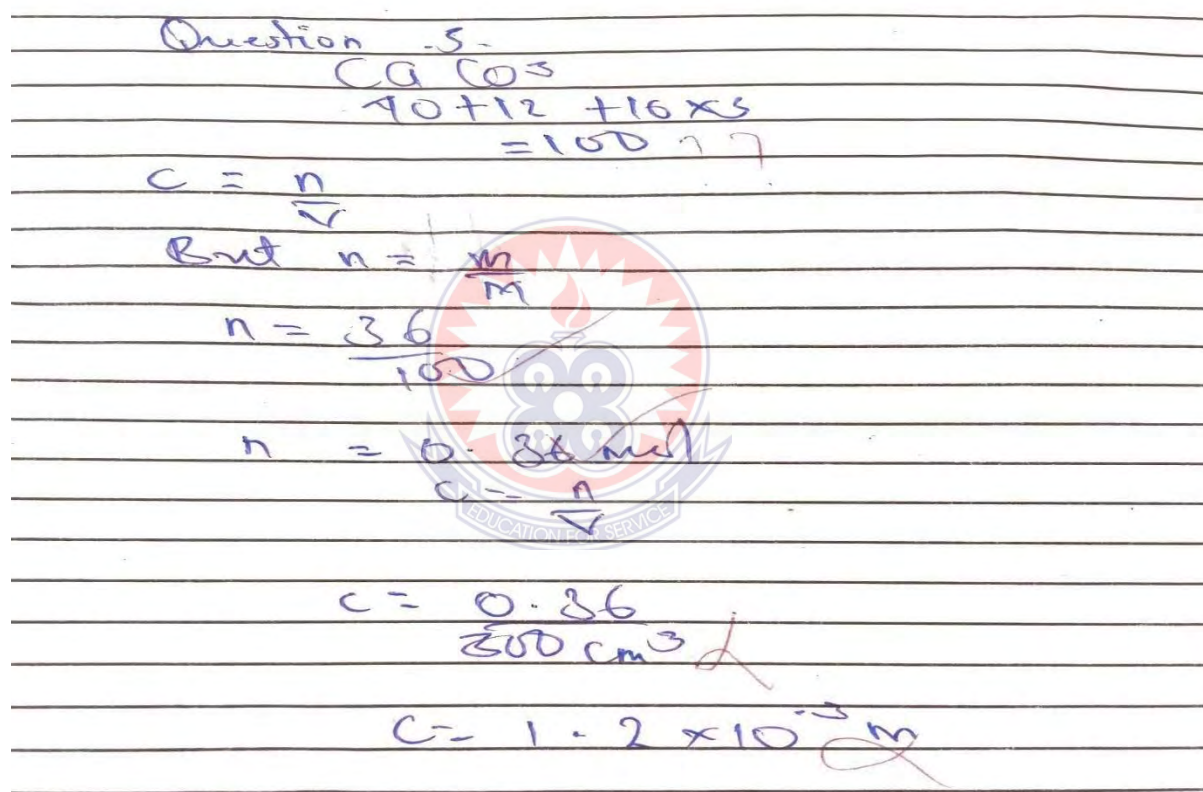 Question .5.
Ca CO3
40+12 +16 x3
=100
C = n
V
But n = m
M
n = 36
100
n = 0.36 mol
C = n
V
EDUCATION FOR SERVICE
C = 0.36
300 cm3
C = 1.2 x10-3 m